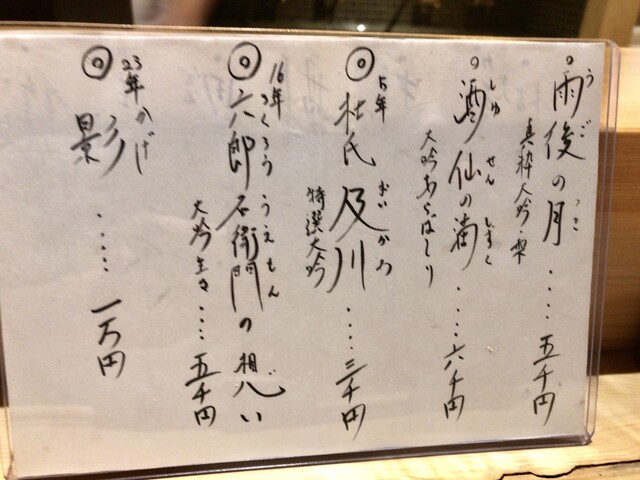 雨後の月・・・・五千円
うごつき
真粋大吟・雫
酒仙の滴・・・・六千円
しゅせんしずく
大吟あらばしり
5年
杜氏 及川・・・・三千円
おいかわ
特選大吟
16年
六郎右衛門の想い
ろくろううえもん
大吟生き・・・・五千円
23年
影・・・・・一万円
かげ